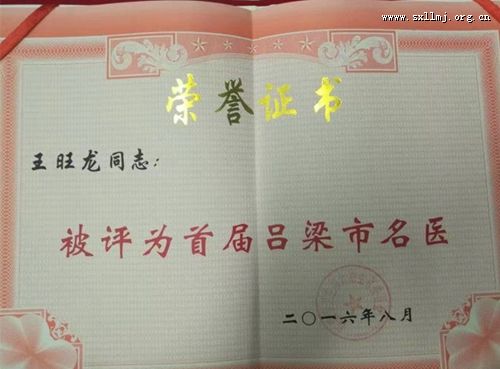 www.sxllmj.org.cn
荣誉证书
王旺龙同志：
被评为首届吕梁市名医
二〇一六年八月